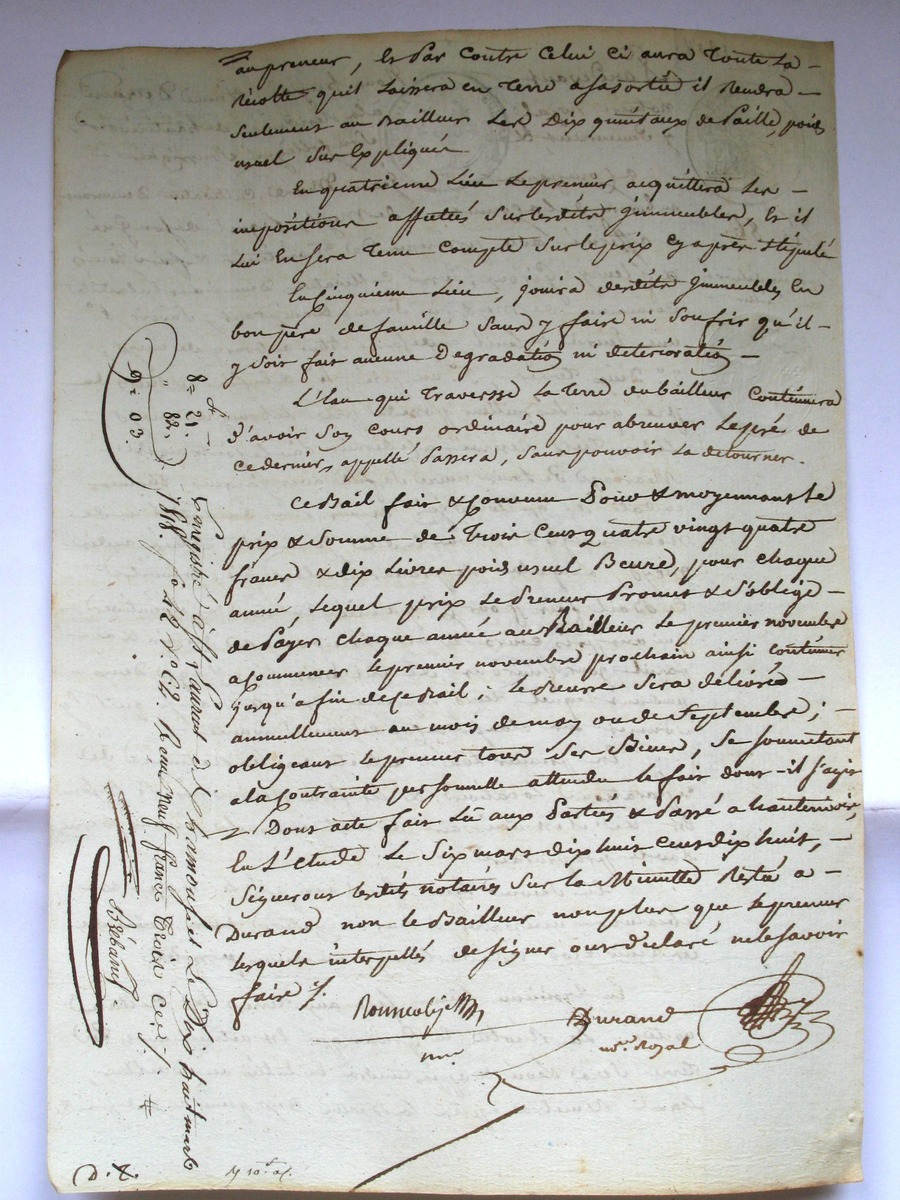 au preneur, Et Par Contre Celui ci aura Toute La
Récolte quil Laissera en Terre a sa sortie il Rendra
seulement au Bailleur Les Dix quintaux de Paille, poids
usuel sus Expliqués
En quatrieme Lieu Le preneur acquittera Les
impositions affectées sur lesdits jmmeubles, Et il
Lui En sera Tenu Compte sur le prix cy après stipulé
En Cinquieme Lieu, jouira desdits jmmeubles En
bon père de famille sans y faire ni soufrir qu'il
y soit fait aucune Degradation ni deterioration
L'Eau qui Traversse La Terre du bailleur Continuera
d'avoir son cours ordinaire pour abreuver Le pré de
ce dernier, appellé Passera, sans pouvoir La detourner.
Ce Bail fait & Convenu Pour & moyennant le
prix & Somme de Trois Cens quatre vingt quatre
francs & dix Livres poids usuel Beure, pour chaque
année, Lequel prix Le Preneur Promet & s'oblige
de Payer chaque année au Bailleur Le premier novembre
a Commencer le premier novembre prochain ainsi continuer
jusqu'a fin de ce Bail ; le Beurre sera délivré
annuellement au mois de may ou de Septembre ;
obligeant Le preneur tous ses Biens, se soumetant
a la Contrainte personnelle attendu le fait dont il s'agit
Dont acte fait Lu aux Parties & Passé a hauterivoire,
En L'Etude Le Six mars dix huit cens dix huit,
Signerons lesdits notaires sur la Minutte Restée a
Durand non le Bailleur non plus que Le preneur
lesquels interpellés de signer ont déclaré ne le savoir
faire ./.
Durand
n.re Royal
8= 21.
82.
9= 03.
Enregistré a St Laurent de Chamousset Le Dix huit mars
1818. f.o 42 R.o C.2. Reçu neuf francs Trois cen.